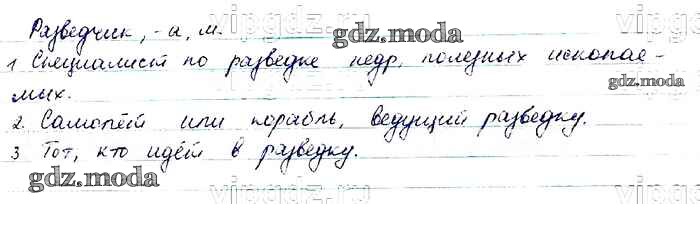 Разведчик, -а, м.
1 Специалист по разведке недр, полезных ископае-
мых.
2. Самолёт или корабль, ведущий разведку.
3 Тот, кто идёт в разведку.
gdz.moda
gdz.moda
gdz.moda
vipgdz.ru
vipgdz.ru
vipgdz.ru
vipgdz.ru